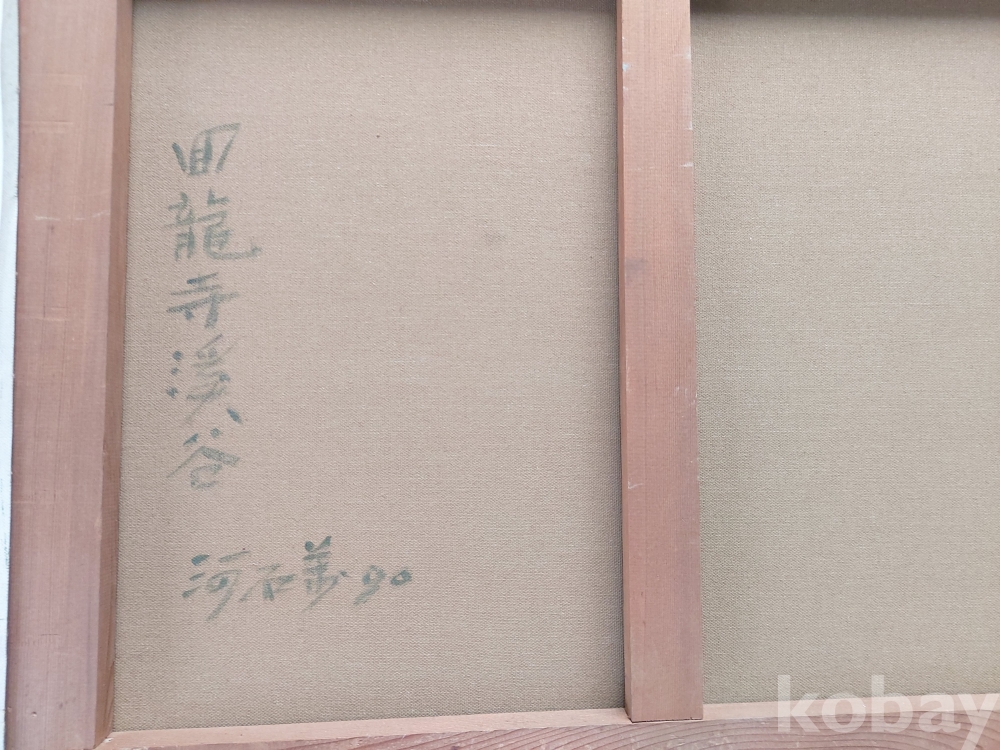 回龍寺溪谷
河石義 90
kobay